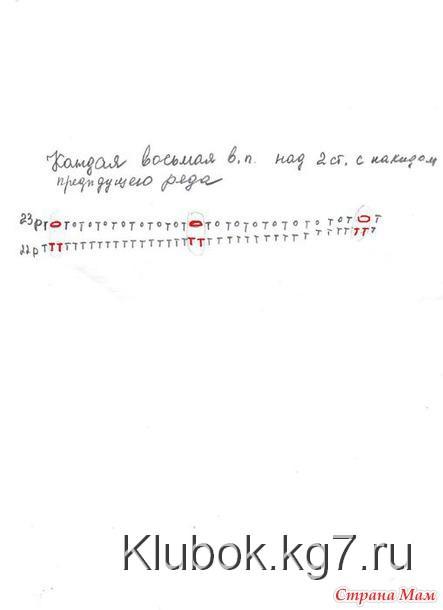 Каждая восьмая в.п. над 2 ст. с накидом
предыдущего ряда
23р Т О Т О Т О Т О Т О Т О Т О Т О Т О Т О Т О Т О Т О Т О Т О Т О Т О Т
22р Т Т Т Т Т Т Т Т Т Т Т Т Т Т Т Т Т Т Т Т Т Т Т Т Т Т Т Т Т Т Т Т Т Т Т Т Т Т
Klubok.kg7.ru
Страна Мам